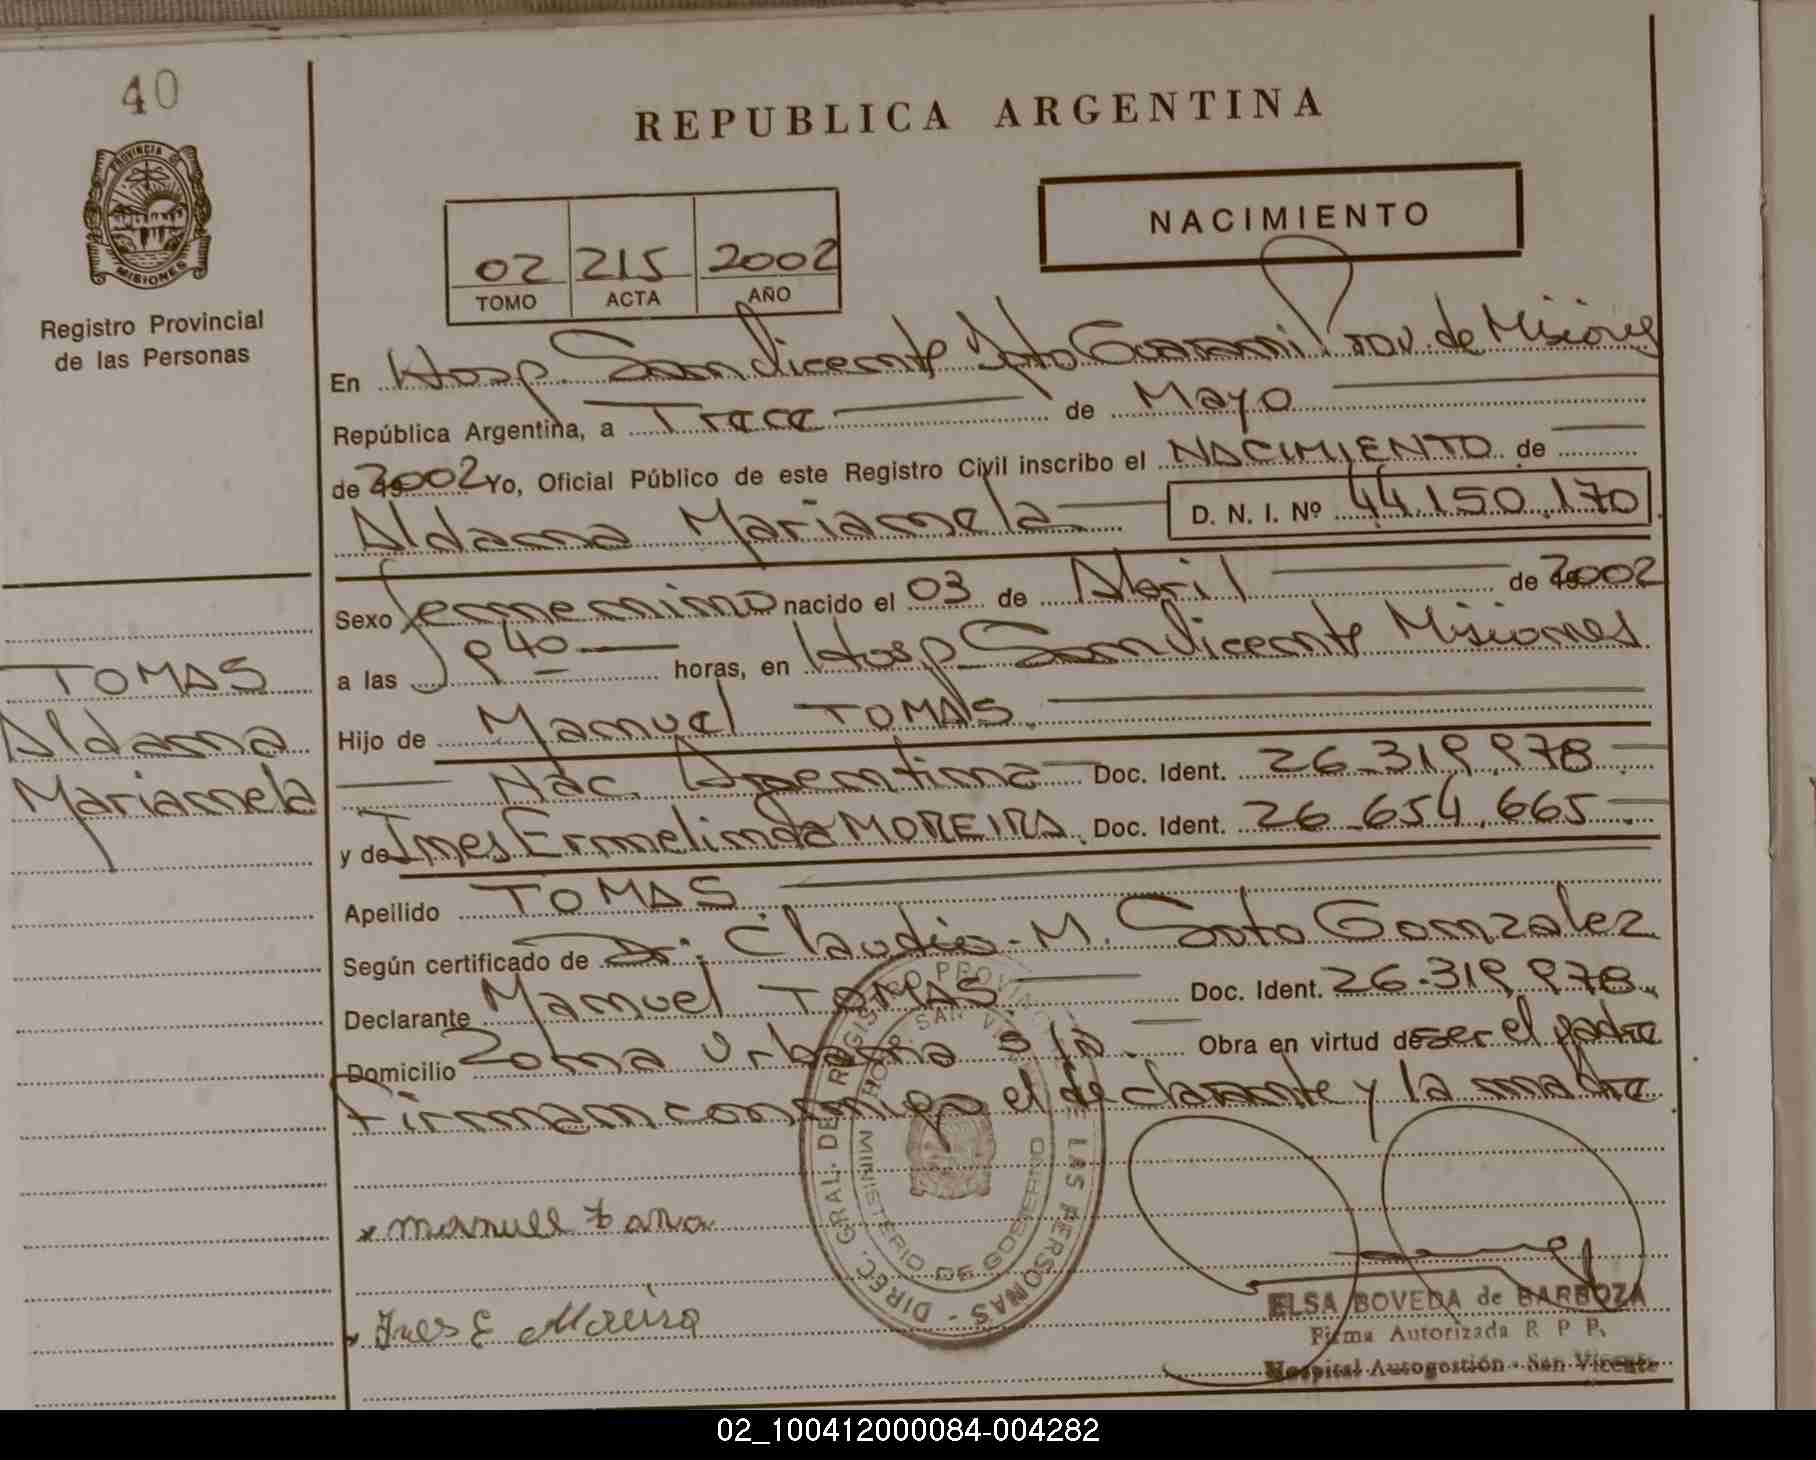 40
PROVINCIA DE
MISIONES
Registro Provincial
de las Personas
REPUBLICA ARGENTINA
NACIMIENTO
02 215 2002
TOMO ACTA AÑO
En Hosp. San Vicente Dpto Guarani Prov. de Misiones
República Argentina, a Trece de Mayo
de 2002 Yo, Oficial Público de este Registro Civil inscribo el NACIMIENTO de
Aldana Marianela D. N. I. Nº 44.150.170
Sexo femenino nacido el 03 de Abril de 2002
a las 9 40 horas, en Hosp San Vicente Misiones
Hijo de Manuel TOMAS
Nac. Argentina Doc. Ident. 26.319.978
y de Ines Ermelinda MOREIRA Doc. Ident. 26.654.665
Apellido TOMAS
Según certificado de Dr. Claudio M. Soto Gonzalez
Declarante Manuel TOMAS Doc. Ident. 26.319.978
Domicilio Zona Urbana s/n. Obra en virtud de ser el padre
Firman conmigo el declarante y la madre
TOMAS
Aldana
Marianela
DIREC. GRAL. DE REGISTRO PROVINCIAL DE LAS PERSONAS
HOSP. SAN VICENTE
MINISTERIO DE GOBIERNO
x manuel
x Ines E Moreira
ELSA BOVEDA de BARBOZA
Firma Autorizada R P P.
Hospital Autogestión - San Vicente
02_100412000084-004282